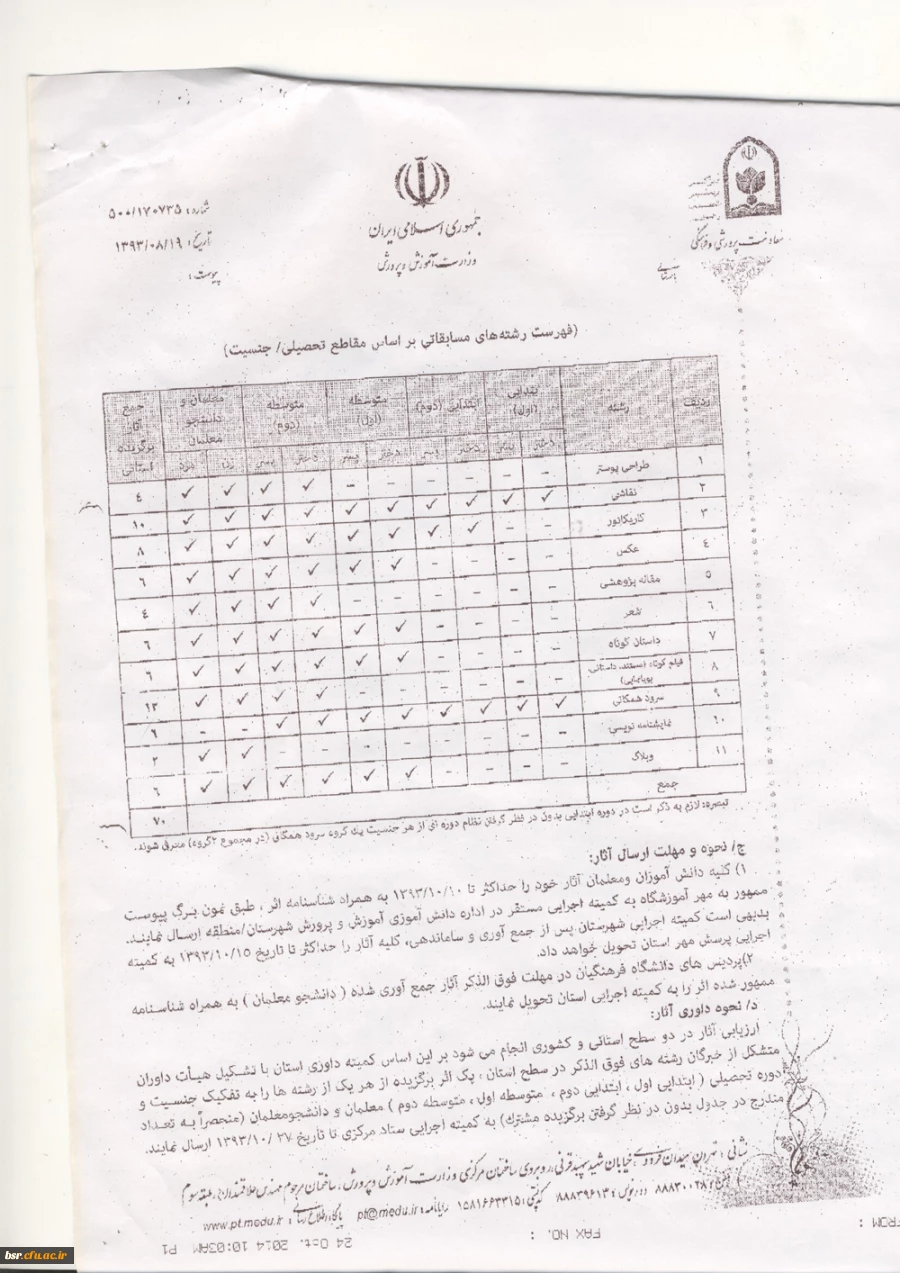 جمهوری اسلامی ایران
وزارت آموزش و پرورش
معاونت پرورشی و فرهنگی
شماره: ۵۰۰/۱۷۰۷۳۵
تاریخ: ۱۳۹۳/۰۸/۱۹
پیوست:
(فهرست رشته‌های مسابقاتی بر اساس مقاطع تحصیلی/ جنسیت)
ردیف رشته ابتدایی (اول) ابتدایی (دوم) متوسطه (اول) متوسطه (دوم) معلمان و دانشجو معلمان جمع آثار برگزیده استانی
دختر پسر دختر پسر دختر پسر دختر پسر زن مرد
۱ طراحی پوستر - - - - - - ✓ ✓ ✓ ✓ ۴
۲ نقاشی ✓ ✓ ✓ ✓ ✓ ✓ ✓ ✓ ✓ ✓ ۱۰
۳ کاریکاتور - - ✓ ✓ ✓ ✓ ✓ ✓ ✓ ✓ ۸
۴ عکس - - - - ✓ ✓ ✓ ✓ ✓ ✓ ۶
۵ مقاله پژوهشی - - - - - - ✓ ✓ ✓ ✓ ۴
۶ شعر - - - - ✓ ✓ ✓ ✓ ✓ ✓ ۶
۷ داستان کوتاه - - - - ✓ ✓ ✓ ✓ ✓ ✓ ۶
۸ فیلم کوتاه (مستند، داستانی، پویانمایی) - - - - - - ✓ ✓ ✓ ✓ ۱۲
۹ سرود همگانی ✓ ✓ ✓ ✓ ✓ ✓ ✓ ✓ - - ۶
۱۰ نمایشنامه نویسی - - - - - - - - ✓ ✓ ۲
۱۱ وبلاگ - - - - ✓ ✓ ✓ ✓ ✓ ✓ ۶
جمع ۷۰
تبصره: لازم به ذکر است در دوره ابتدایی بدون در نظر گرفتن نظام دوره ای از هر جنسیت یک گروه سرود همگانی (در مجموع ۲گروه) معرفی شوند.
ج/ نحوه و مهلت ارسال آثار:
۱) کلیه دانش آموزان ومعلمان آثار خود را حداکثر تا ۱۳۹۳/۱۰/۱۰ به همراه شناسنامه اثر ، طبق نمون برگ پیوست
ممهور به مهر آموزشگاه به کمیته اجرایی مستقر در اداره دانش آموزی آموزش و پرورش شهرستان/منطقه ارسال نمایند.
بدیهی است کمیته اجرایی شهرستان پس از جمع آوری و ساماندهی، کلیه آثار را حداکثر تا تاریخ ۱۳۹۳/۱۰/۱۵ به کمیته
اجرایی پرسش مهر استان تحویل خواهد داد.
۲)پردیس های دانشگاه فرهنگیان در مهلت فوق الذکر آثار جمع آوری شده ( دانشجو معلمان ) به همراه شناسنامه
ممهور شده اثر را به کمیته اجرایی استان تحویل نمایند.
د/ نحوه داوری آثار:
ارزیابی آثار در دو سطح استانی و کشوری انجام می شود بر این اساس کمیته داوری استان با تشکیل هیأت داوران
متشکل از خبرگان رشته های فوق الذکر در سطح استان ، یک اثر برگزیده از هر یک از رشته ها را به تفکیک جنسیت و
دوره تحصیلی ( ابتدایی اول ، ابتدایی دوم ، متوسطه اول ، متوسطه دوم ) معلمان و دانشجومعلمان (منحصراً به تعداد
مندرج در جدول بدون در نظر گرفتن برگزیده مشترک) به کمیته اجرایی ستاد مرکزی تا تاریخ ۱۳۹۳/۱۰/ ۲۷ ارسال نمایند.
نشانی : تهران، میدان فردوسی، خیابان شهید سپهبد قرنی، روبروی ساختمان مرکزی وزارت آموزش و پرورش، ساختمان مرحوم مهندس علاقمندان، طبقه سوم
تلفن: ۸۸۸۳۰۰۲۸ دورنویس: ۸۸۸۳۹۶۱۳ کدپستی: ۱۵۸۱۶۶۳۳۱۵ رایانامه: pt@medu.ir پایگاه اطلاع رسانی: www.pt.medu.ir
FROM : FAX NO. : 24 Oct. 2014 10:03AM P1
bsr.cfu.ac.ir